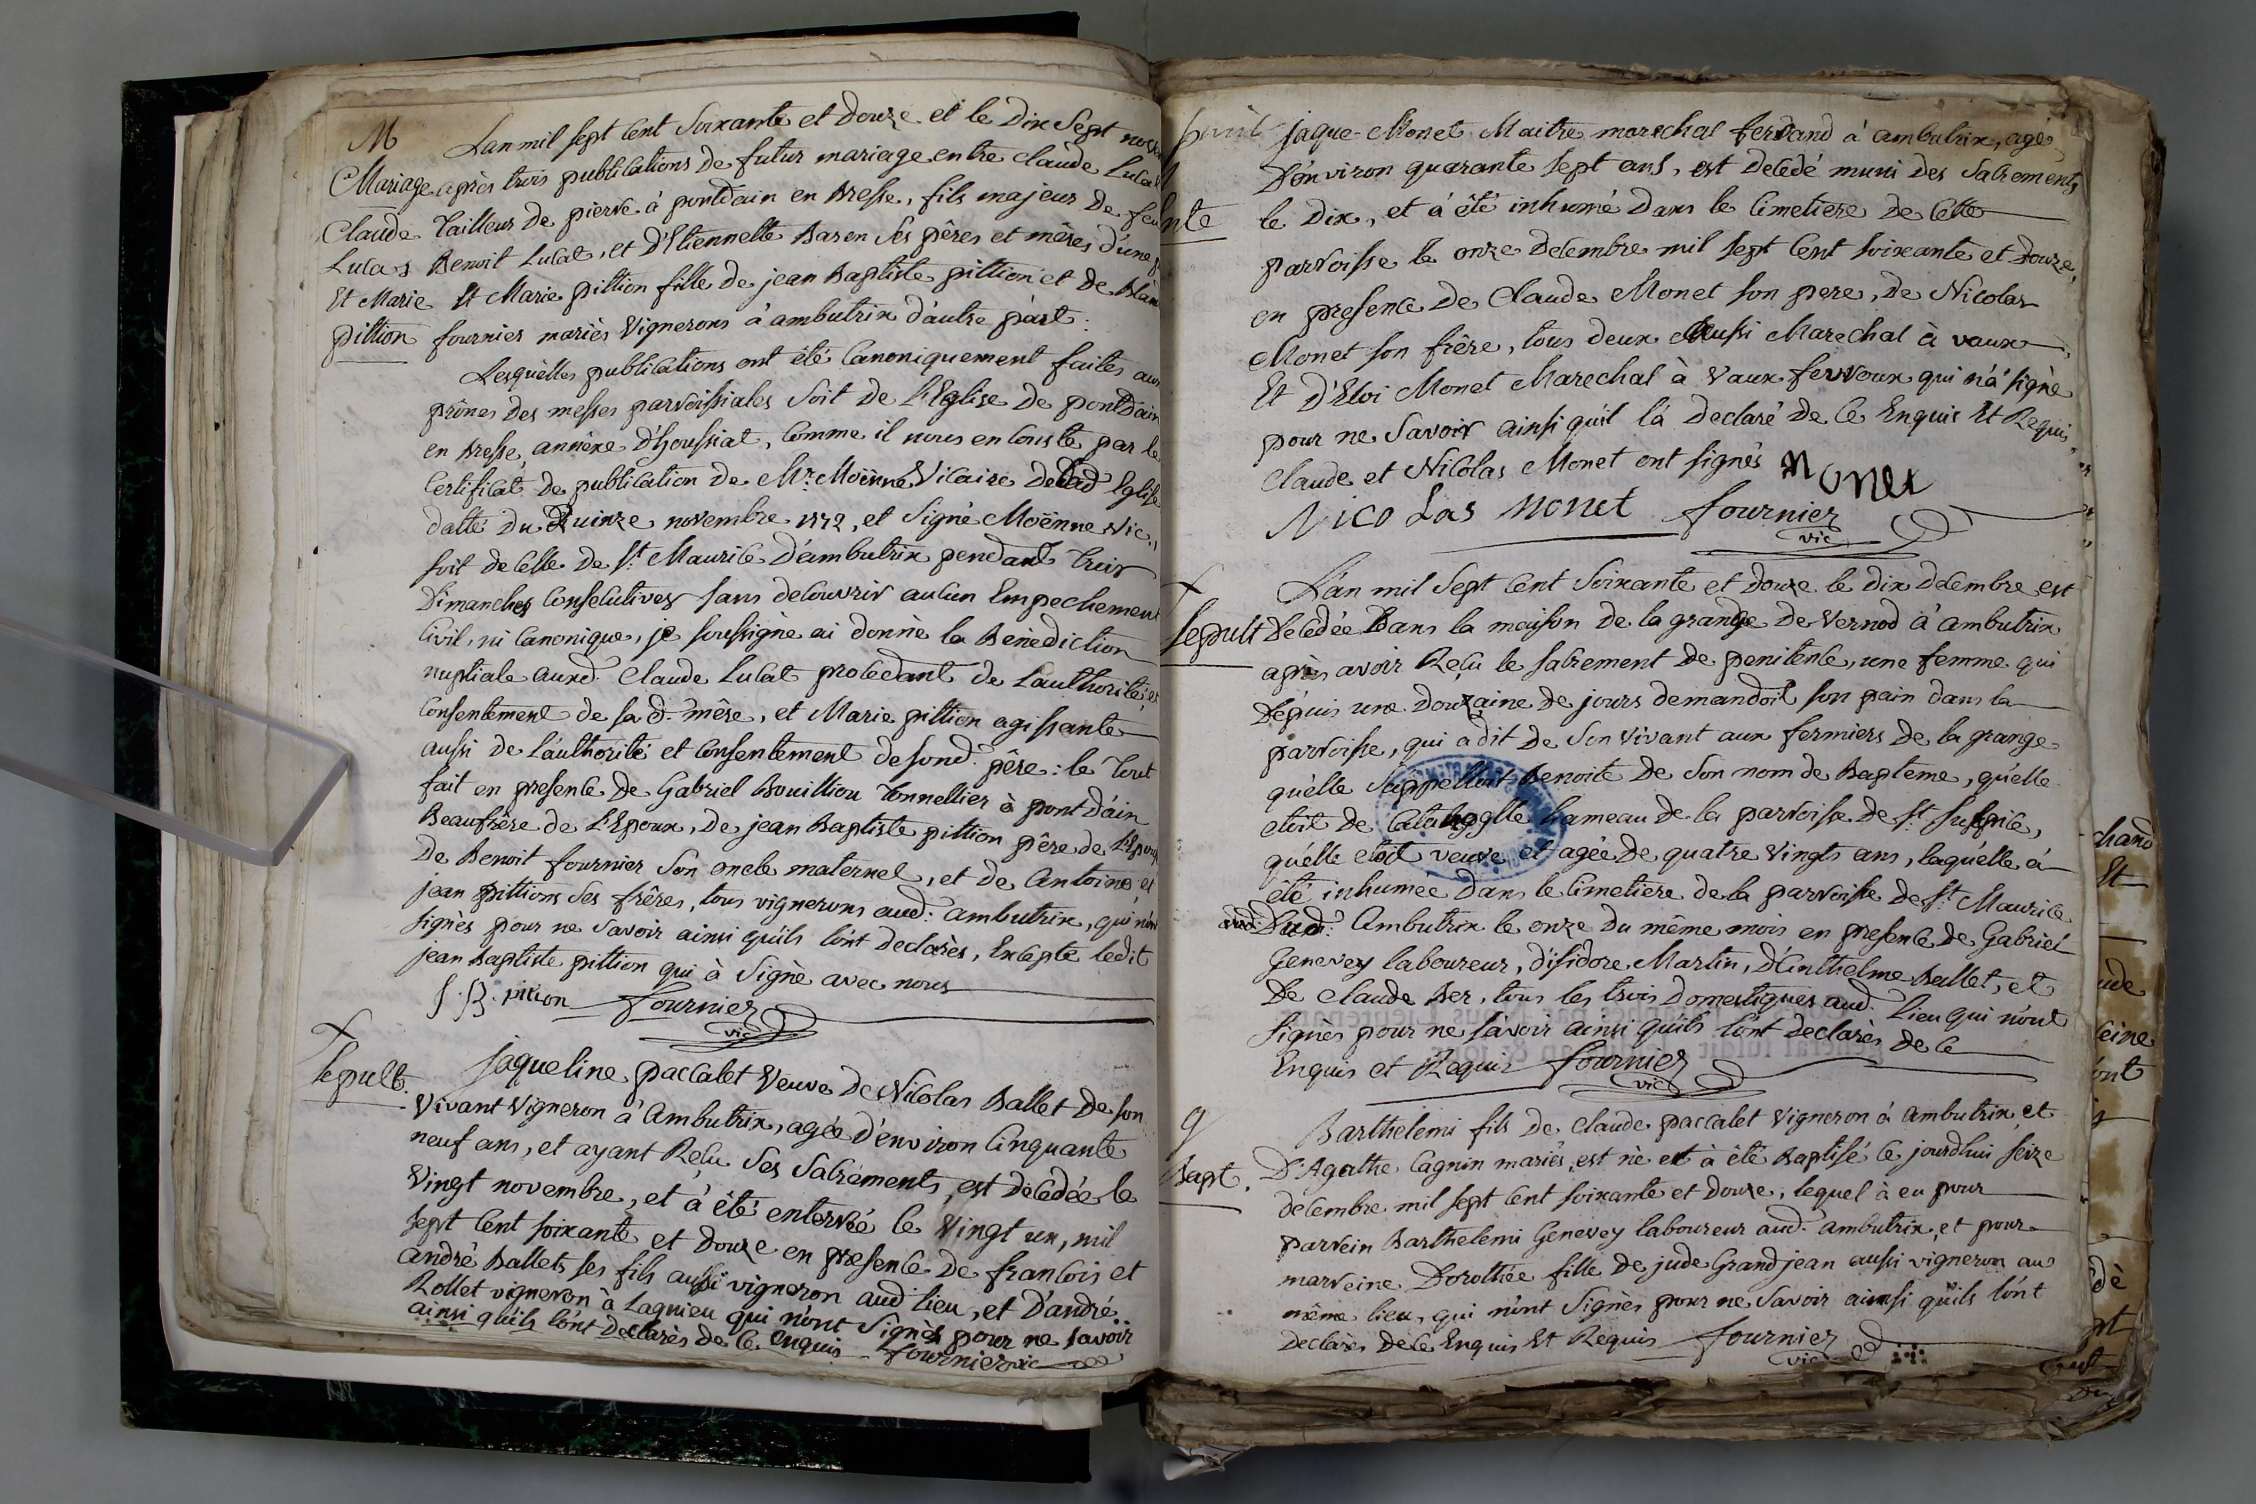 M
Mariage
Claude
Lucas
Et Marie
pittion
Lan mil sept Cent Soixante et Douze et le Dix Sept
après trois publications de futur mariage entre claude Lucat
Tailleur de pierre à pontdain en Bresse, fils majeur de feu
Benoit Lucat, et D'Etiennette Baron Ses pères et mères d'une
Et Marie pittion fille de jean Baptiste pittion et de
fournier mariès Vignerons à ambutrix d'autre part:
Lesquelles publications ont été Canoniquement faites aux
prônes des messes parroissiales Soit de L'Eglise de pontdain
en Bresse, annéxe d'houssiat, Comme il nous en Conste par le
Certificat de publication de Mr. Moënne Vicaire de Lad Eglise
datté du Quinze novembre 1772, et Signé Moënne Vic.,
soit de Celle de St Maurice D'ambutrix pendant trois
Dimanches Consecutives sans decouvrir aucun Empechement
Civil, ni Canonique, je soussigné ai donné la Bénédiction
nuptiale auxd. Claude Lucat procedant de L'authorité, et
Consentement de sa d. mère, et Marie pittion agissante
aussi de L'authorité et Consentement de sond. père: le tout
fait en presence de Gabriel Bouilliou Tonnellier à pont d'ain
Beaufrère de L'Epoux, de jean Baptiste pittion père de
De Benoit fournier Son oncle maternel, et de Antoine, et
jean pittions Ses frères, tous vignerons aud. ambutrix, qui
signès pour ne Savoir ainsi qu'ils l'ont Declarès, Excepté ledit
jean Baptiste pittion qui à Signè avec nous
J. B. pition fournier
vic
Sepult.
Jaqueline paccalet Veuve de Nicolas Ballet De son
Vivant Vigneron à Ambutrix, agée d'environ Cinquante
neuf ans, et ayant Reçu Ses Sacrements, est décédée le
Vingt novembre, et à été enterrée le Vingt un, mil
sept Cent soixante et Douze en presence de francois et
andré Ballets ses fils aussi vigneron aud lieu, et D'andrè
Rollet vigneron à Lagnieu qui n'ont Signès pour ne savoir
ainsi qu'ils l'ont Declarès de Ce enquis fournier vic
jaque Monet Maitre marechal ferrand à ambutrix, agé
D'environ quarante Sept ans, est Decedé muni des Sacrements
le Dix, et à été inhumé Dans le Cimetiere de Cette
parroisse le onze Decembre mil sept Cent soixante et Douze,
en presence de Claude Monet son pere, de Nicolas
Monet son frère, tous deux aussi Marechal à vaux
Et D'Eloi Monet Marechal à Vaux fevroux qui n'a signè
pour ne Savoir ainsi qu'il l'a Declaré De Ce Enquis Et Requis
Claude et Nicolas Monet ont signès Monet
Nicolas Monet fournier
vic
Sepult
L'an mil Sept Cent Soixante et Douze le Dix Decembre est
Decedée Dans la maison de la grange de Vernod à ambutrix
après avoir Reçu le sacrement de penitence, une femme qui
Depuis une douzaine de jours demandoit son pain dans la
parroisse, qui a dit de Son vivant aux fermiers de la grange
qu'elle S'appelloit Benoite de Son nom de Bapteme, qu'elle
etoit de hameau de la parroisse de St Sulpice,
qu'elle etoit veuve et agée De quatre Vingts ans, laquelle à
été inhumee Dans le Cimetiere de la parroisse de St Maurice
Dud. Ambutrix le onze Du même mois en presence de Gabriel
Genevey laboureur, D'isidore Martin, D'Anthelme Ballet, et
De Claude Ber, tous les trois Domestiques aud. Lieu qui n'ont
Signès pour ne sávoir ainsi qu'ils l'ont declarès De Ce
Enquis et Requis fournier
vic
9
Bapt.
Barthelemi fils De Claude paccalet Vigneron à ambutrix, et
D'Agathe Cagnin mariés, est nè et à été Baptisé Ce jourdhui seize
decembre mil sept Cent soixante et Douze, lequel à eu pour
parrein Barthelemi Genevey laboureur aud. ambutrix, et pour
marreine Dorothée fille De jude Grandjean aussi vigneron au
même lieu, qui n'ont Signès pour ne Savoir ainsi qu'ils l'ont
Declarès De Ce Enquis Et Requis fournier
vic